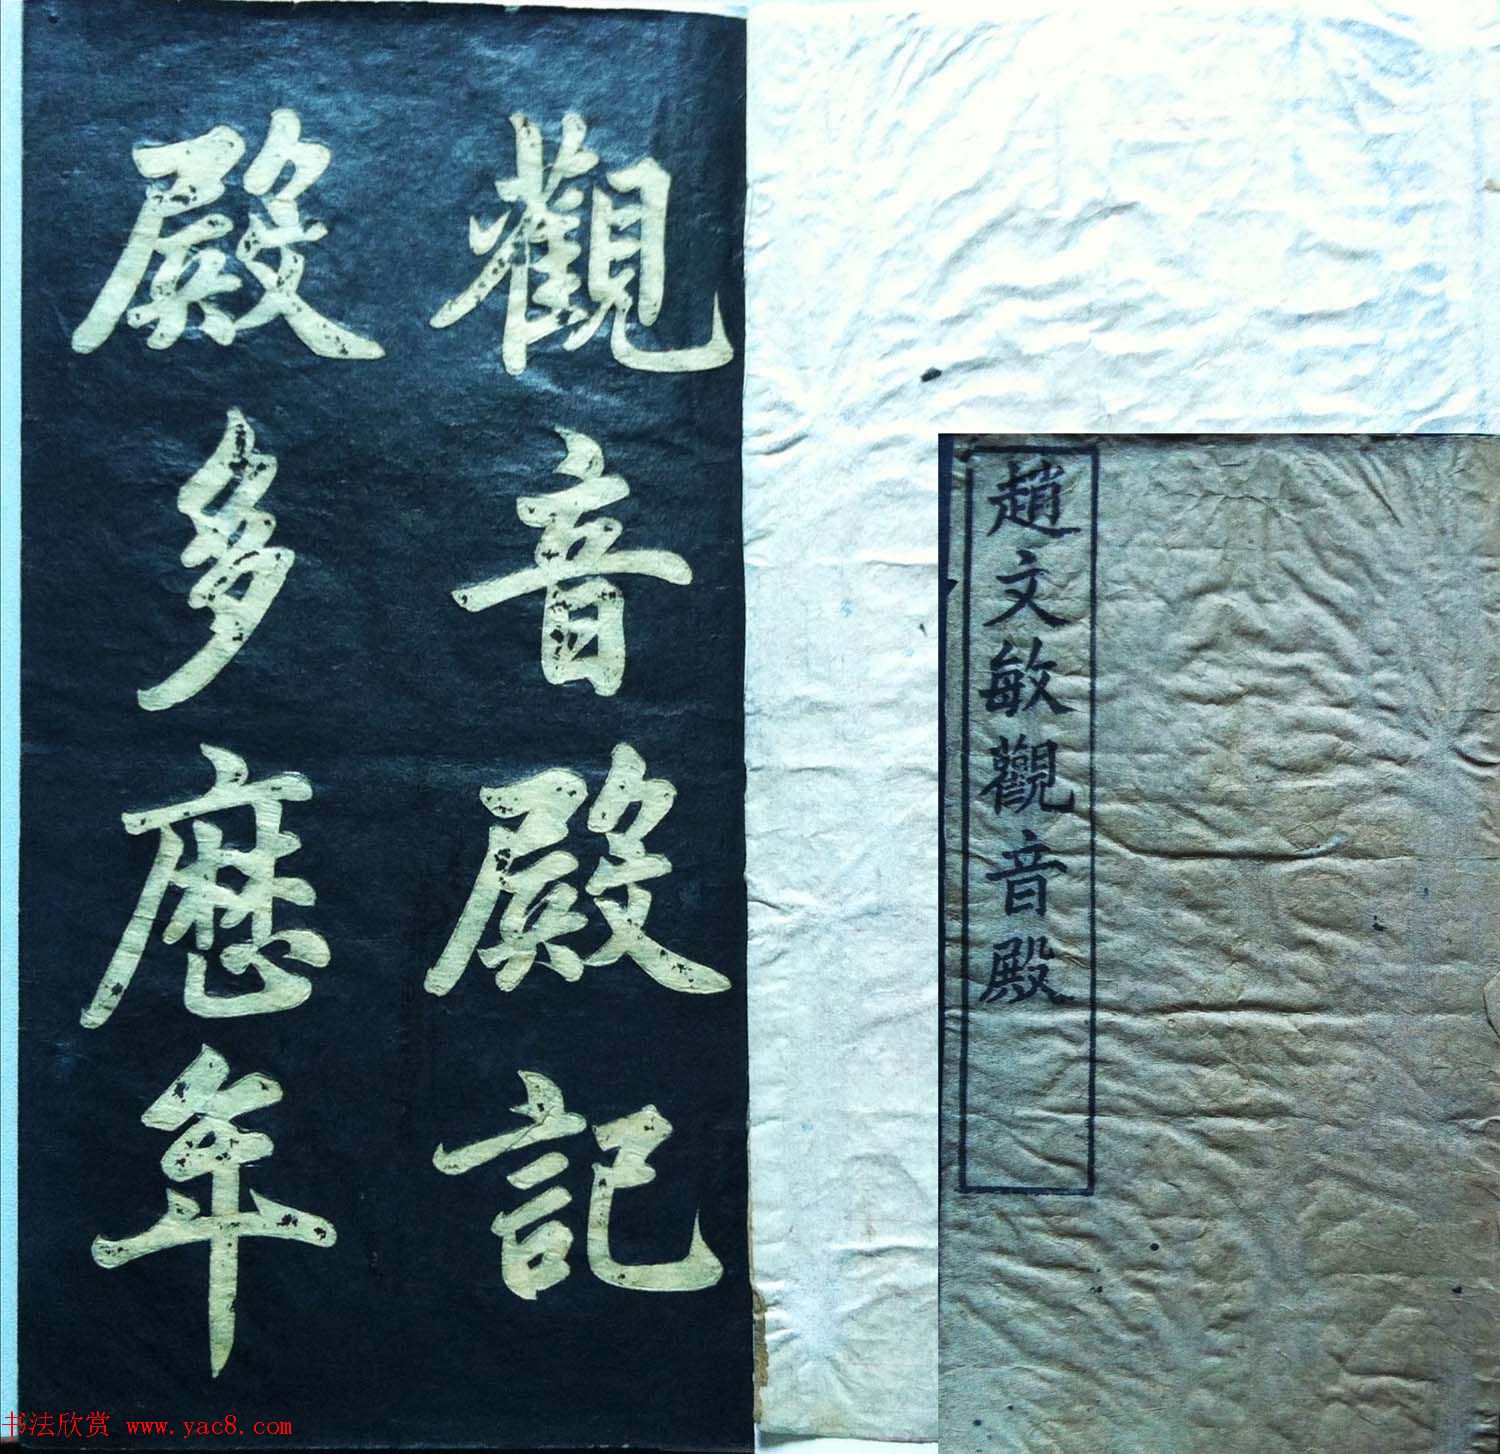 趙文敏觀音殿
觀音殿記
殿多歷年
书法欣赏 www.yac8.com